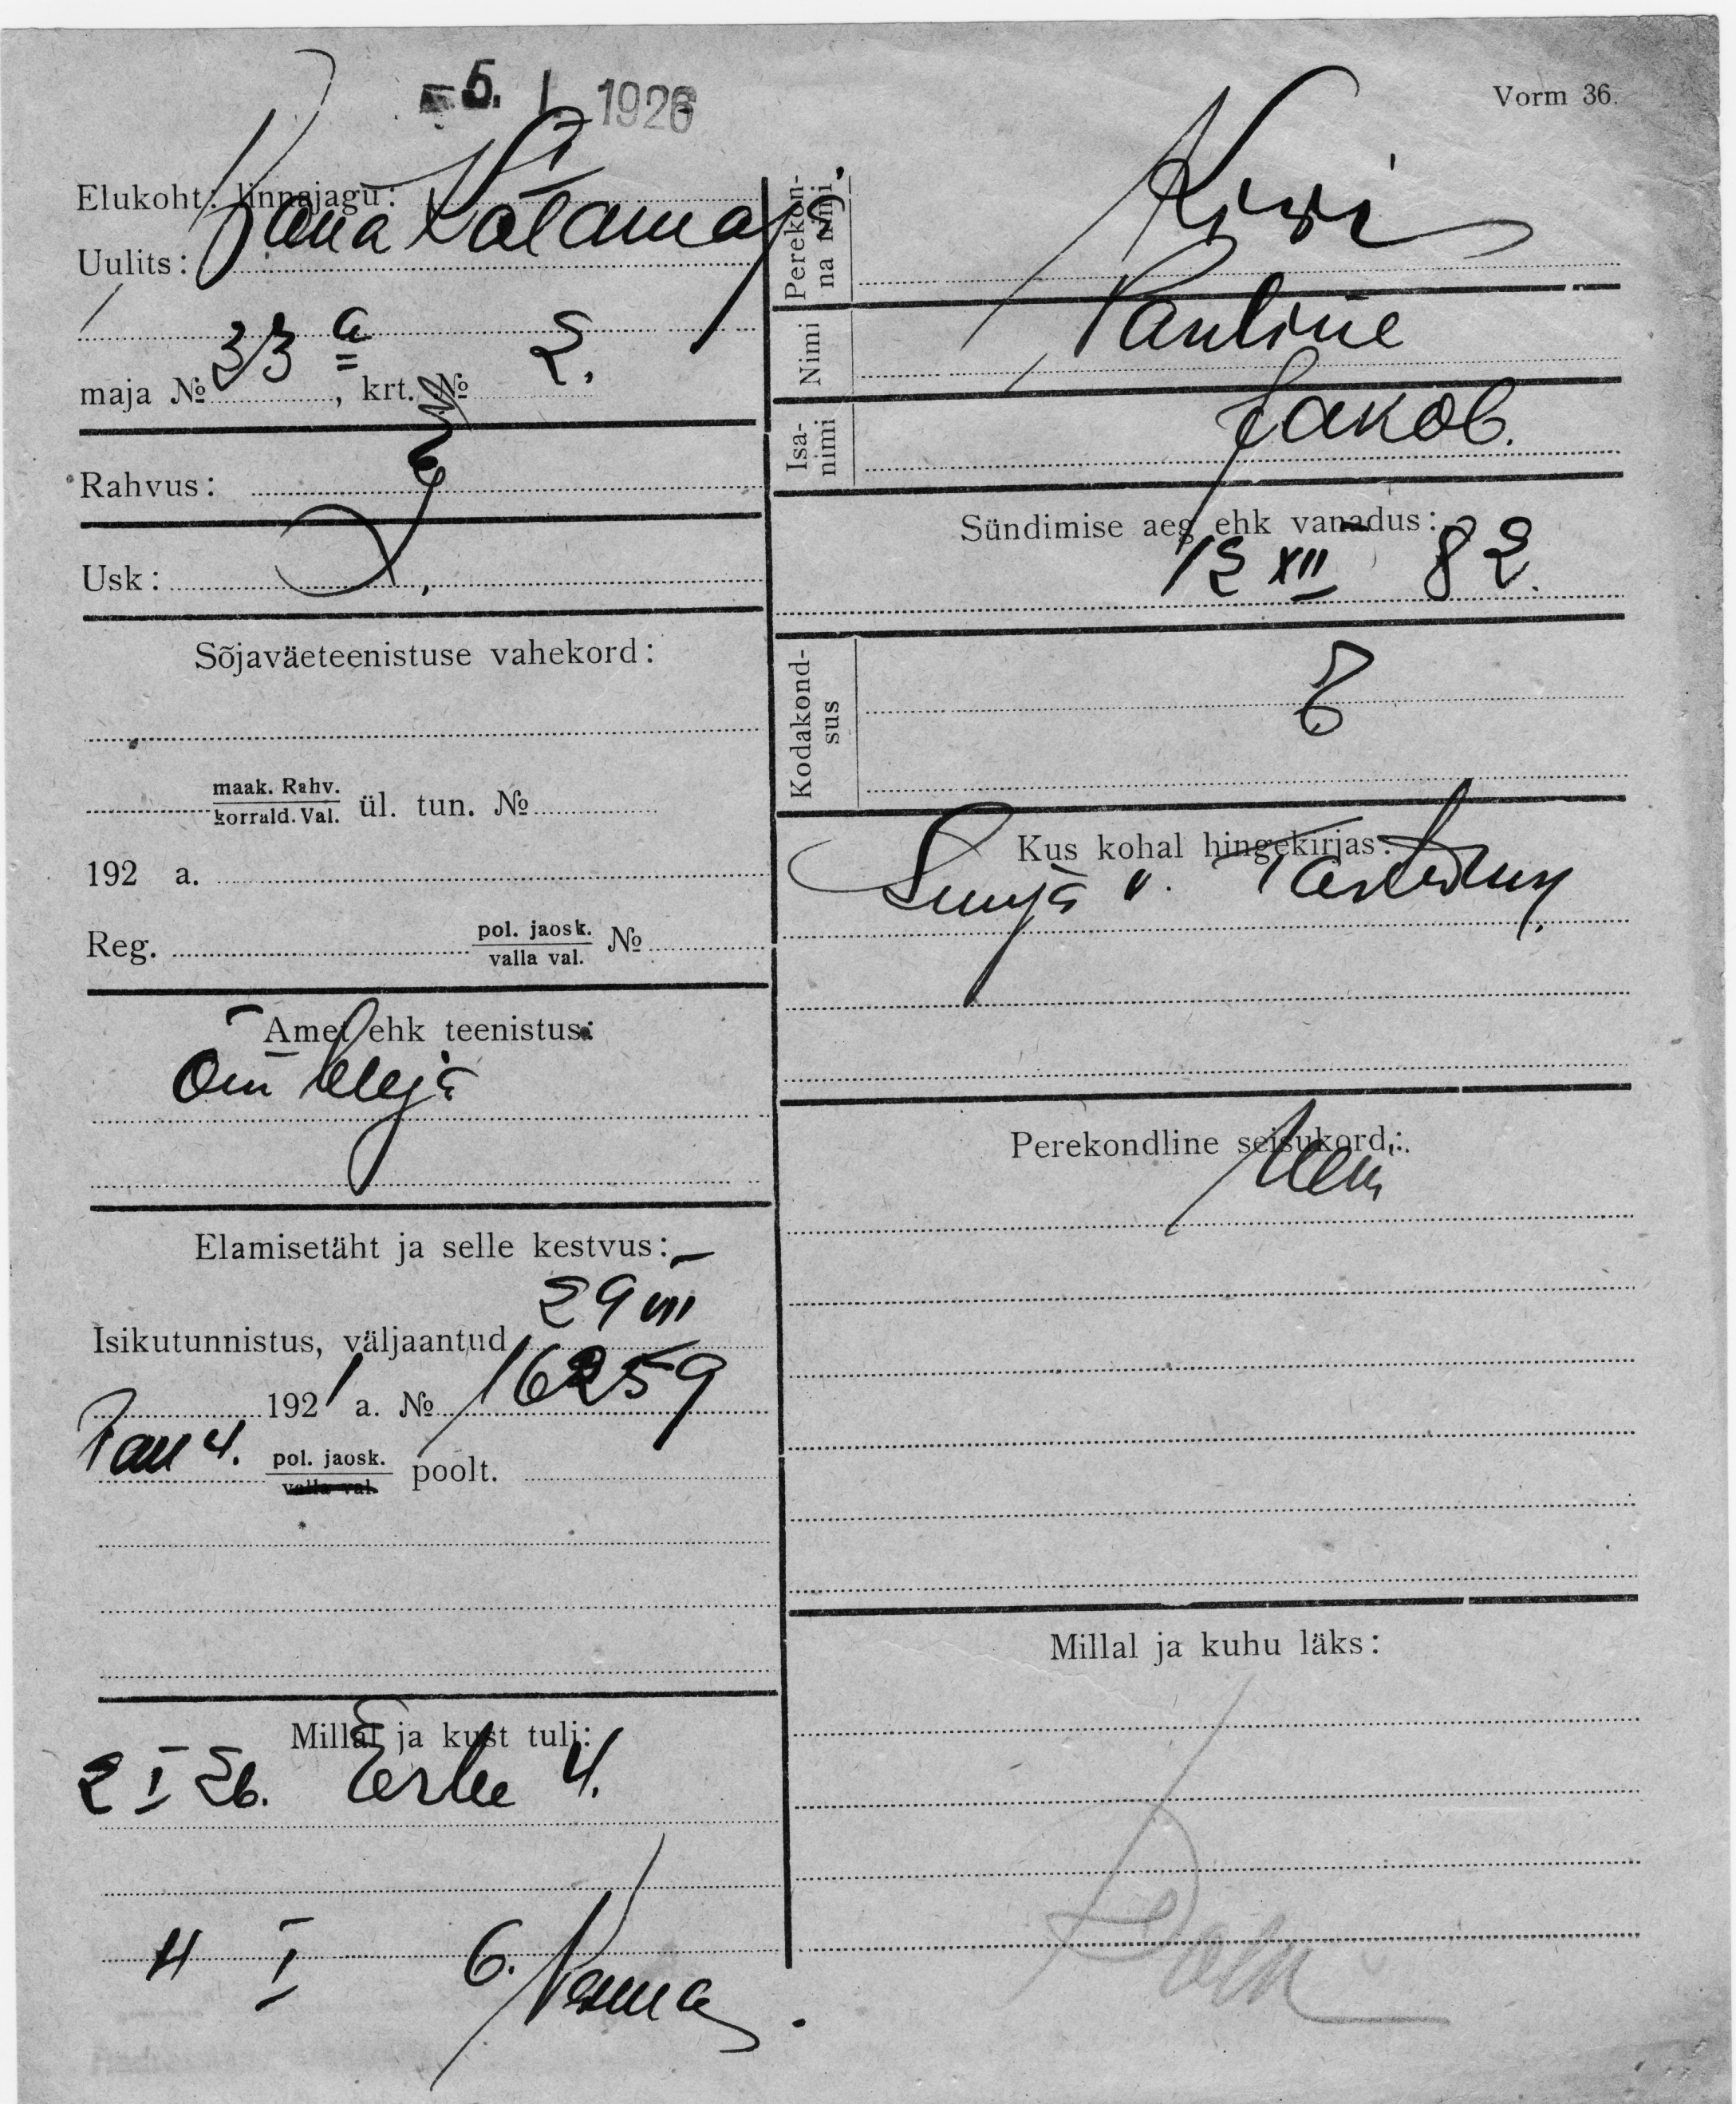 -5. I 1926
Vorm 36.
VI
Elukoht: linnajagu:
Uulits: Vana Kalamaja
maja № 33 a, krt. № 2.
Rahvus:
Usk:
Sõjaväeteenistuse vahekord:
maak. Rahv.
korrald. Val. ül. tun. №
192 a.
Reg. pol. jaosk.
valla val. №
Amet ehk teenistus:
Õmbleja
Elamisetäht ja selle kestvus: —
29 VII
Isikutunnistus, väljaantud
1921 a. № 16259
Tall 4. pol. jaosk.
valla val. poolt.
Millal ja kust tuli:
2 I 26. Erbe 4.
4 I 6.
Perekon-
na nimi Kiwi
Nimi Pauline
Isa-
nimi Jakob.
Sündimise aeg ehk vanadus:
12 XII 82.
Kodakond-
sus E
Kus kohal hingekirjas:
Luunja v. Tartu
Perekondline seisukord:
Millal ja kuhu läks: